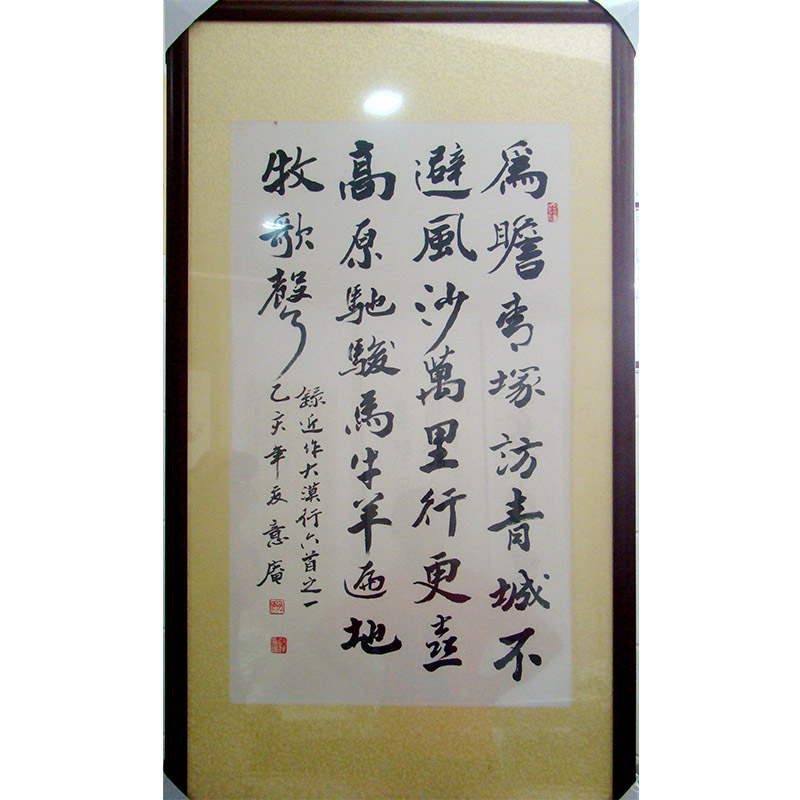 為瞻青塚訪青城不
避風沙萬里行更喜
高原馳駿馬牛羊遍地
牧歌聲
錄近作大漠行六首之一
乙亥年夏意庵